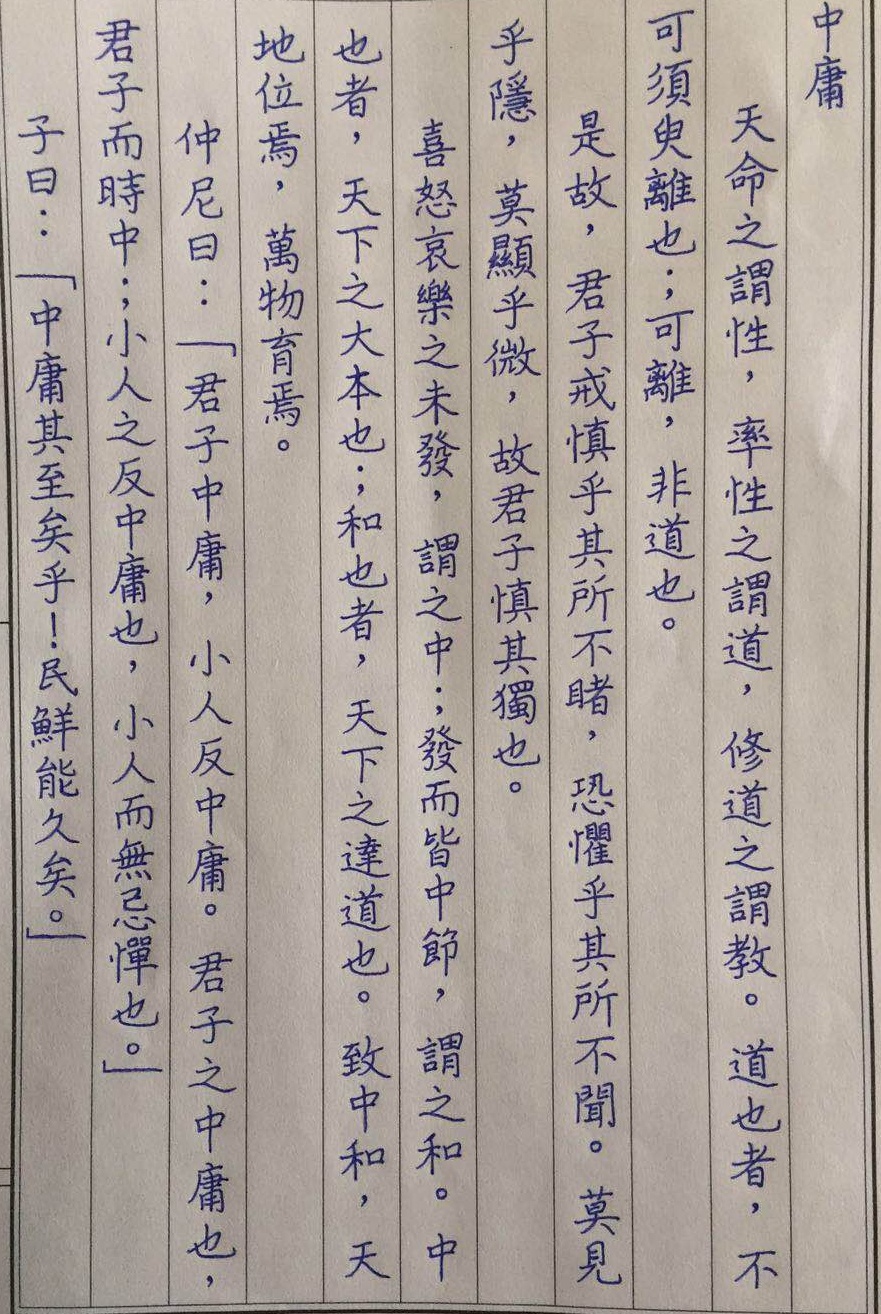 中庸
天命之謂性，率性之謂道，修道之謂教。道也者，不
可須臾離也；可離，非道也。
是故，君子戒慎乎其所不睹，恐懼乎其所不聞。莫見
乎隱，莫顯乎微，故君子慎其獨也。
喜怒哀樂之未發，謂之中；發而皆中節，謂之和。中
也者，天下之大本也；和也者，天下之達道也。致中和，天
地位焉，萬物育焉。
仲尼曰：「君子中庸，小人反中庸。君子之中庸也，
君子而時中；小人之反中庸也，小人而無忌憚也。」
子曰：「中庸其至矣乎！民鮮能久矣。」